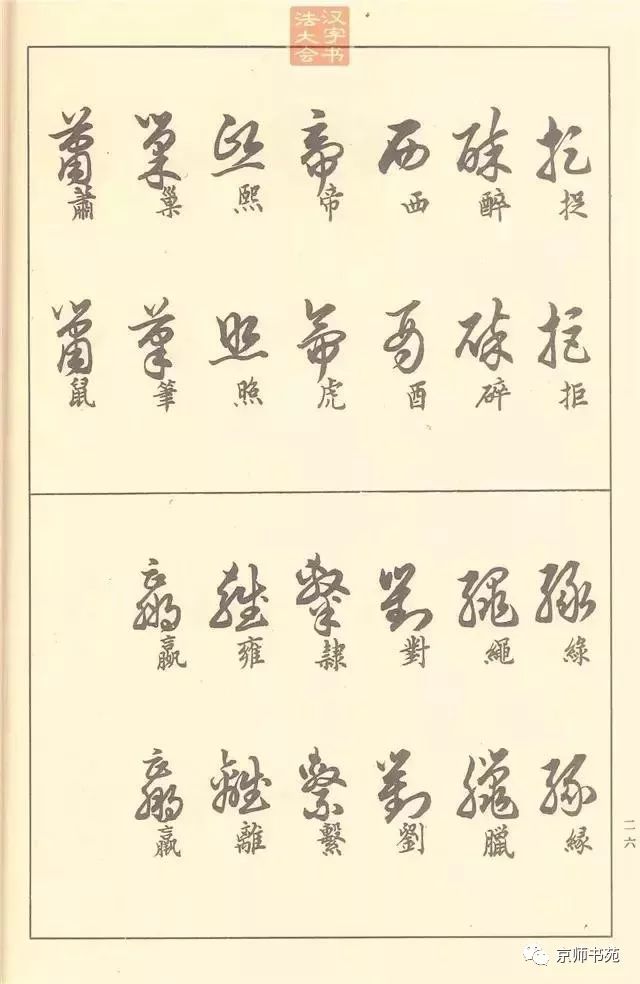 汉字书
法大会
捉 醉 西 帝 熙 巢 蕭
拒 碎 酉 虎 照 筆 鼠
綠 繩 對 隸 雍
緣 臘 劉 繫 離
二六
京师书苑